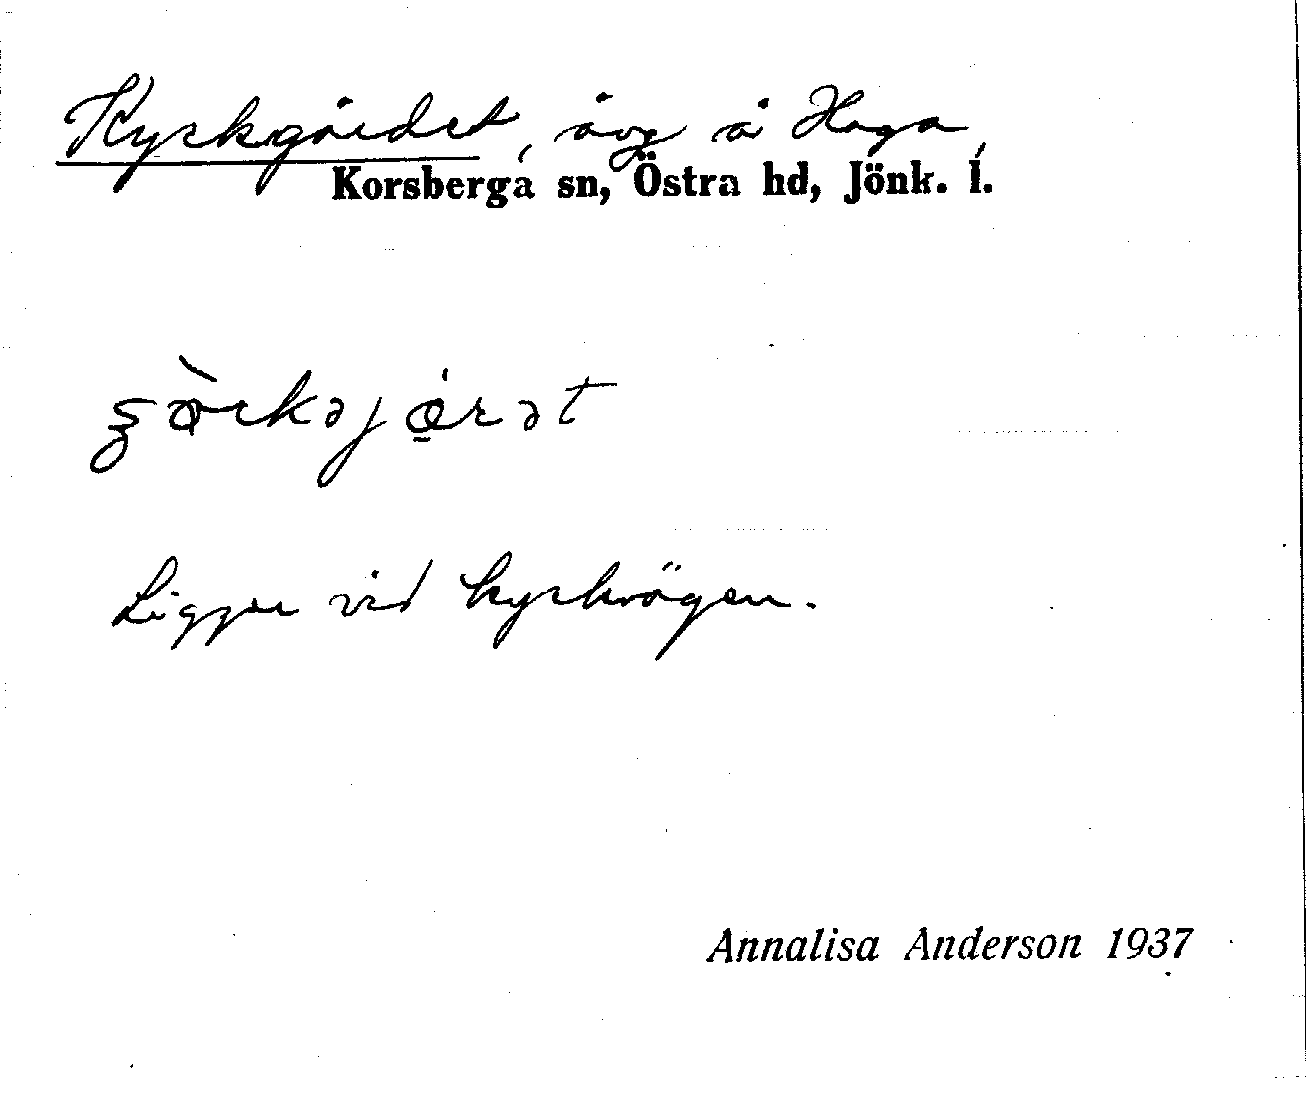 Kyrkgärdet, åvg å Haga,
Korsberga sn, Östra hd, Jönk. l.
Ligger vid kyrkvägen.
Annalisa Anderson 1937